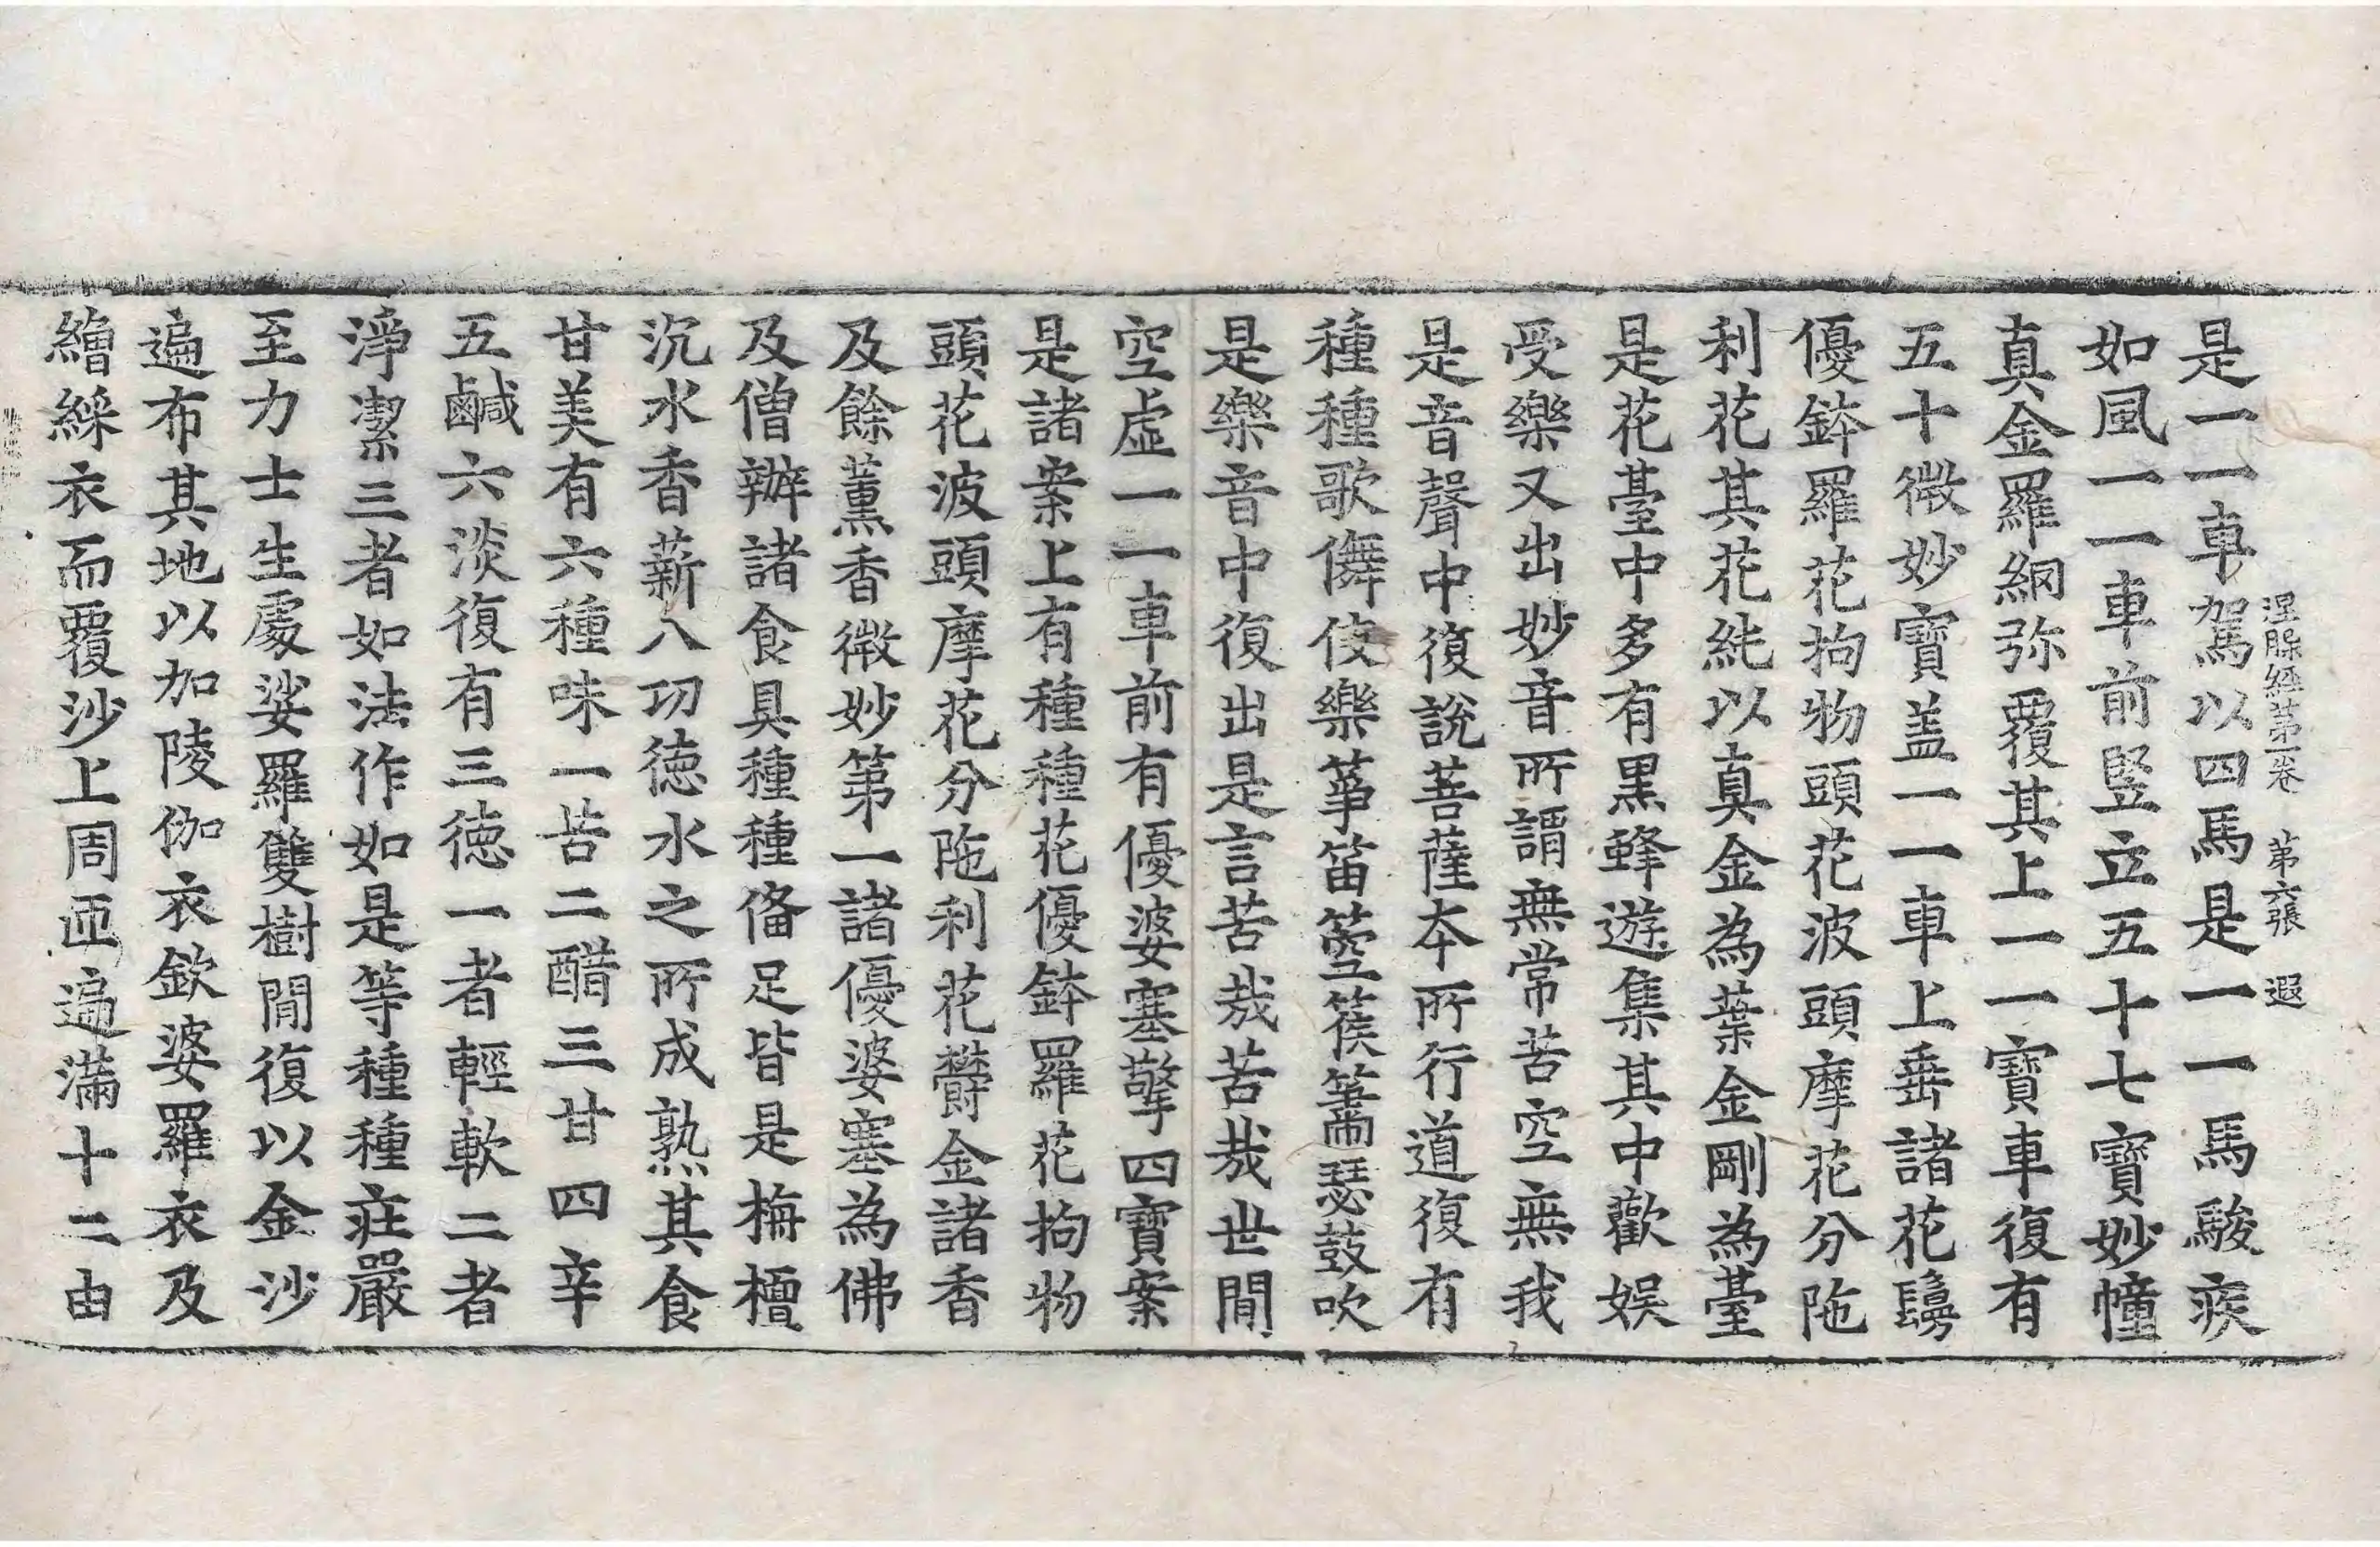 涅槃經第一卷 第六張 遐
是一一車駕以四馬是一一馬駿疾
如風一一車前竪立五十七寶妙幢
真金羅網弥覆其上一一寶車復有
五十微妙寶盖一一車上垂諸花鬘
優鉢羅花拘物頭花波頭摩花分陁
利花其花純以真金為葉金剛為臺
是花臺中多有黑蜂遊集其中歡娛
受樂又出妙音所謂無常苦空無我
是音聲中復說菩薩本所行道復有
種種歌儛伎樂箏笛箜篌簫瑟鼓吹
是樂音中復出是言苦哉苦哉世閒
空虛一一車前有優婆塞擎四寶案
是諸案上有種種花優鉢羅花拘物
頭花波頭摩花分陁利花欝金諸香
及餘薰香微妙第一諸優婆塞為佛
及僧辦諸食具種種俻足皆是栴檀
沉水香薪八功德水之所成熟其食
甘美有六種味一苦二醋三甘四辛
五鹹六淡復有三德一者輕軟二者
淨潔三者如法作如是等種種莊嚴
至力士生處娑羅雙樹閒復以金沙
遍布其地以加陵伽衣欽婆羅衣及
繒綵衣而覆沙上周匝遍滿十二由